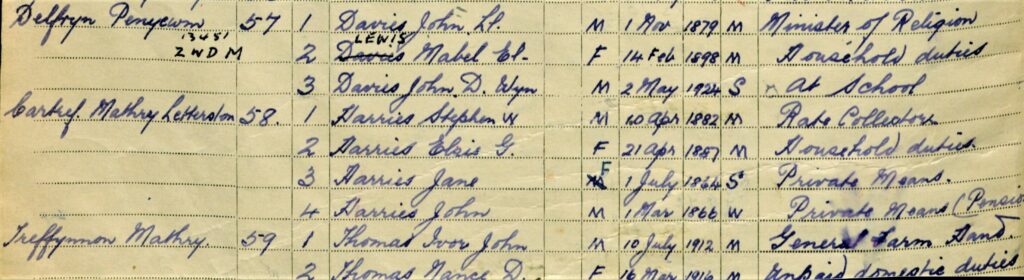 Delfryn Penycwm 57 1 Davies John Ll. M 1 Nov 1879 M Minister of Religion
LEWIS
2 Davies Mabel El- F 14 Feb 1898 M Household duties
ZWD M
3 Davies John D. Wyn M 2 May 1924 S At School
Cartref. Mathry Letterston 58. 1 Harries Stephen W M 20 Apr 1882 M Rate Collector
2 Harries Elsie G. F 21 Apr 1887 M Household duties
F
3 Harries Jane M 1 July 1864 S Private Means.
4 Harries John M 1 Mar 1866 W Private Means (Pension
Treffynnon Mathry. 59 1 Thomas Ivor John M 10 July 1912 M General Farm Hand.
2 Thomas Nance D. F 16 Mar 1916 M Unpaid domestic duties